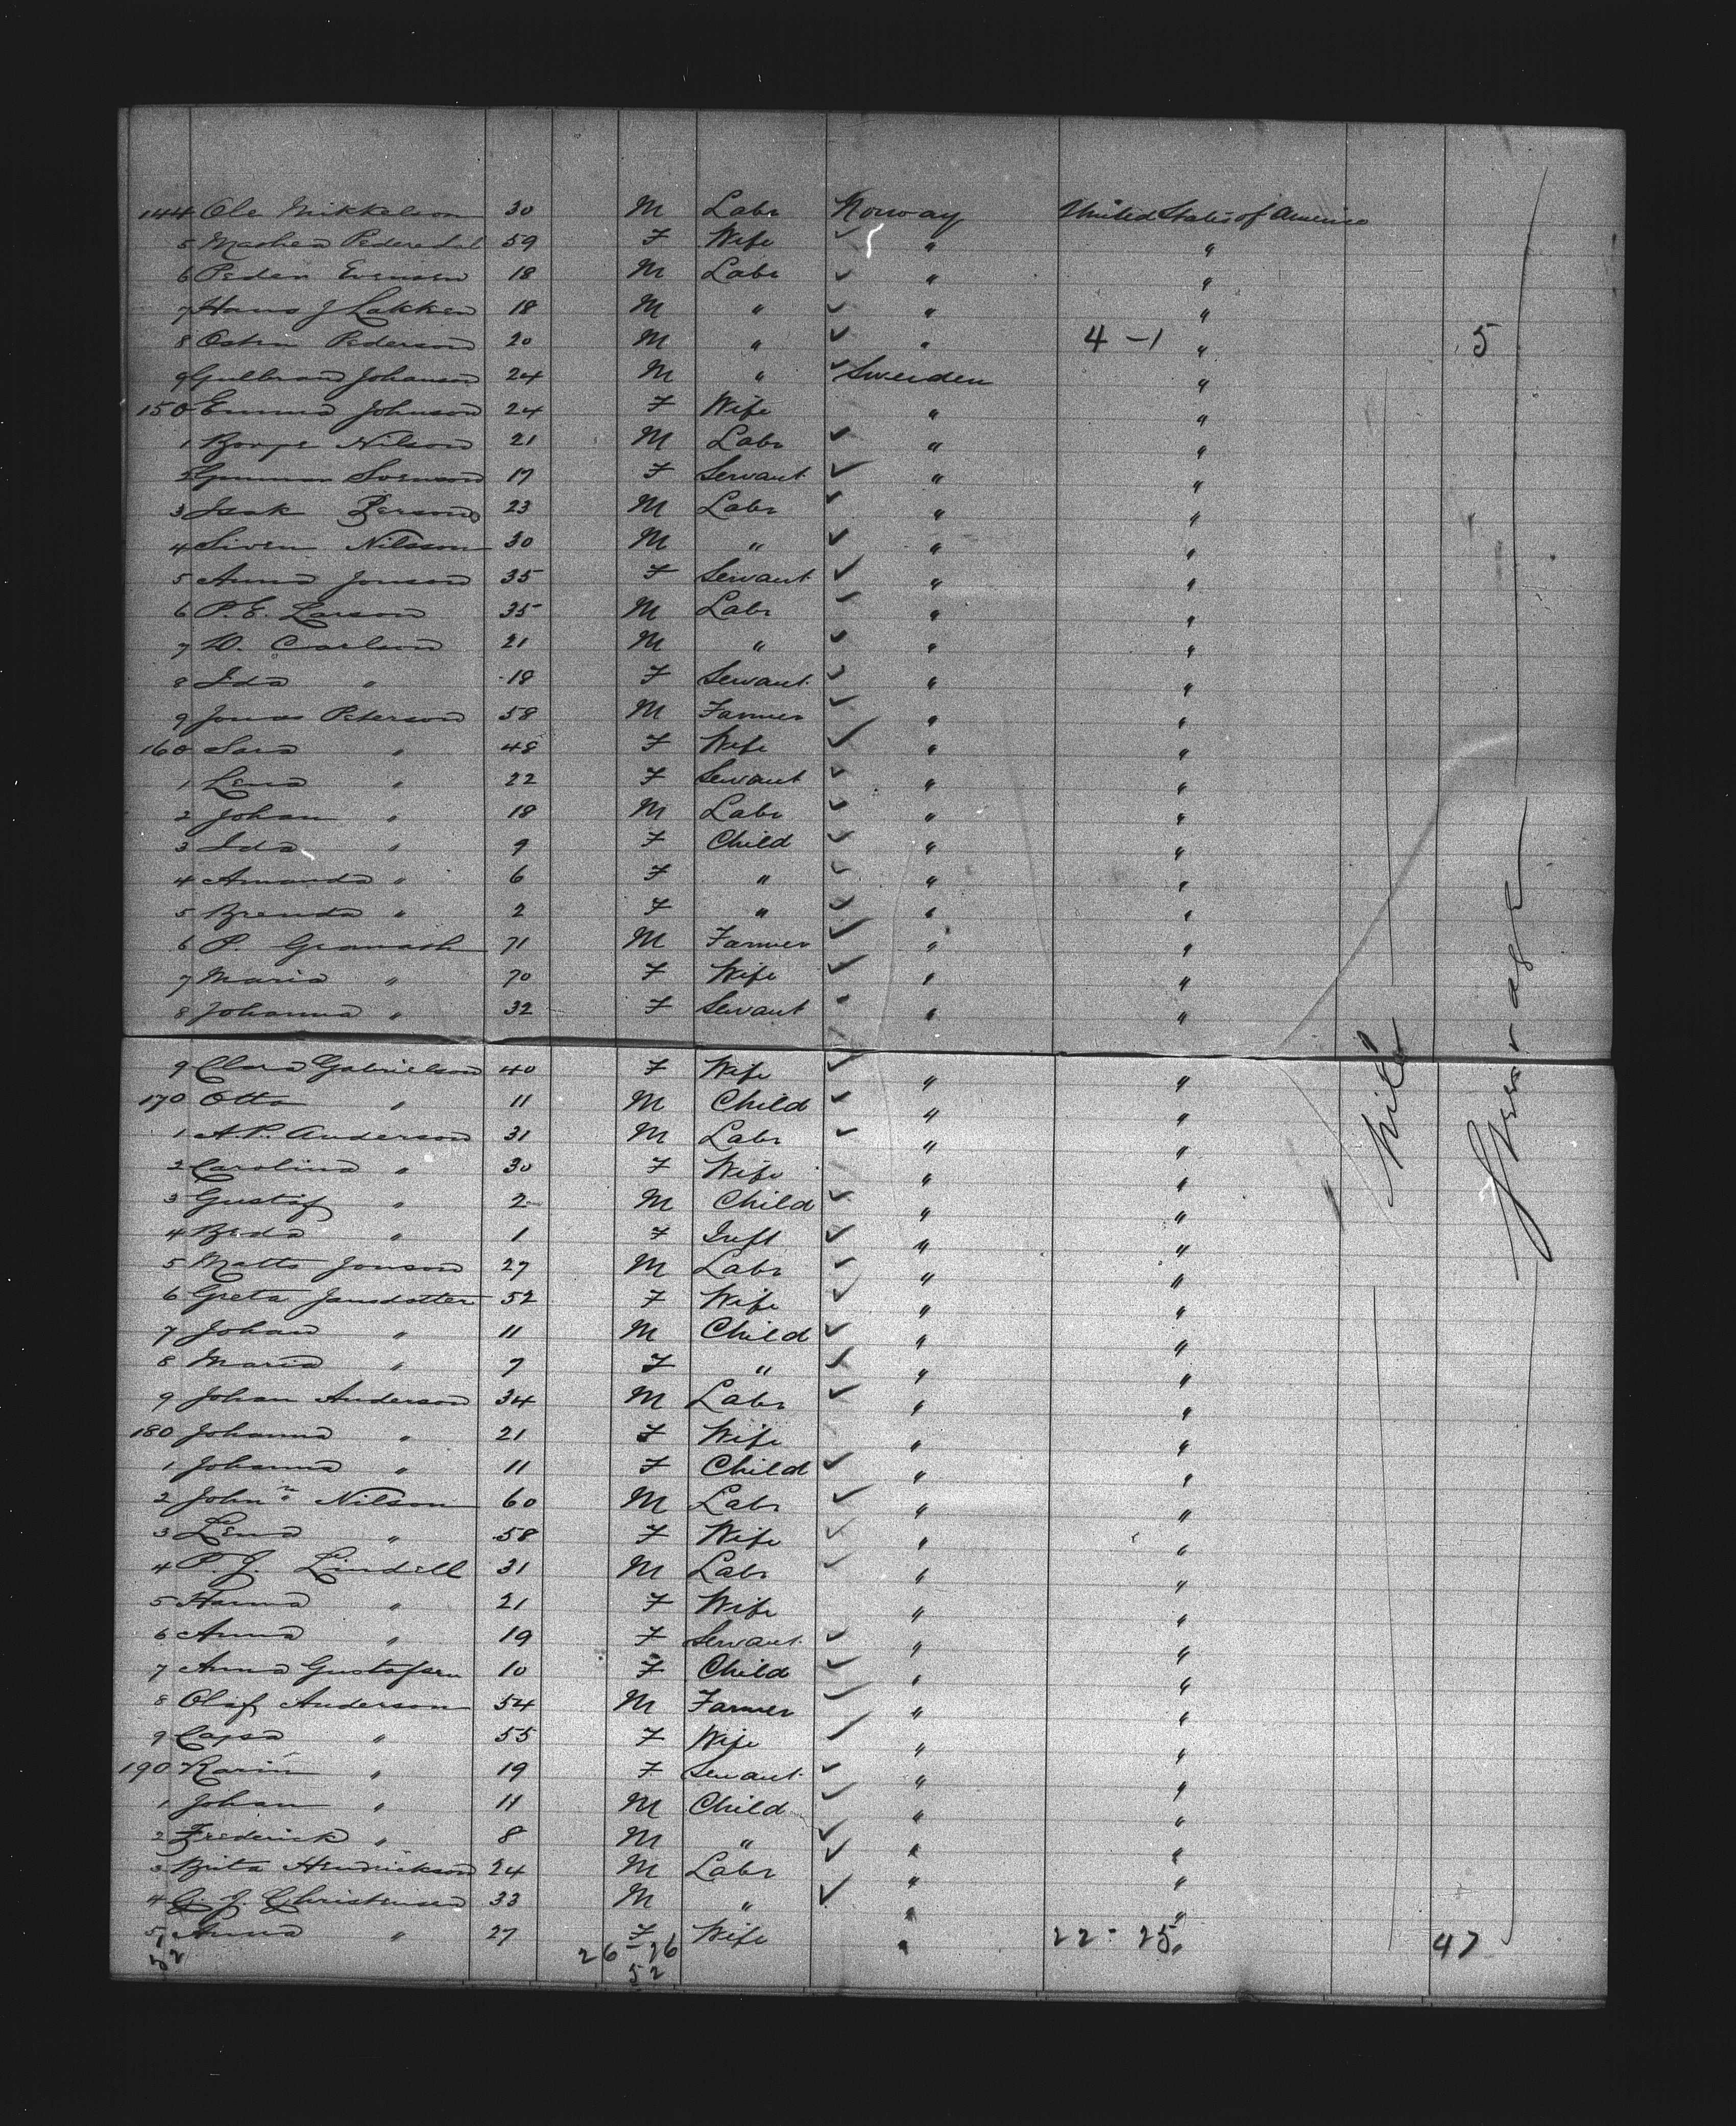 144 Ole Mikkelson 30 M Labr Norway United States of America
5 Mathea Pedersdal 59 F Wife " "
6 Peder Evensen 18 M Labr " "
7 Hans J Lakken 18 M " " "
8 Osten Pederson 20 M " " 4-1 " 5
9 Gulbrand Johanson 24 M " Sweden "
150 Emma Johnson 24 F Wife " "
1 Borge Nilson 21 M Labr " "
2 Svenson 17 F Servant " "
3 Isak Person 23 M Labr " "
4 Siven Nilsson 30 M " " "
5 Anna Jonson 35 F Servant " "
6 P. E. Larson 35 M Labr " "
7 W. Carlson 21 M " " "
8 Ida " 18 F Servant " "
9 Jonas Peterson 58 M Farmer " "
160 Sara " 48 F Wife " "
1 Lena " 22 F Servant " "
2 Johan " 18 M Labr " "
3 Ida " 9 F Child " "
4 Amanda " 6 F " " "
5 Brenda " 2 F " " "
6 P. Granath 71 M Farmer " "
7 Maria " 70 F Wife " "
8 Johanna " 32 F Servant " "
9 Clara Gabrielson 40 F Wife " "
170 Otto " 11 M Child " "
1 A. P. Anderson 31 M Labr " "
2 Carolina " 30 F Wife " "
3 Gustaf " 2 M Child " "
4 Beda " 1 F Inft " "
5 Matts Jonson 27 M Labr " "
6 Greta Jansdotter 52 F Wife " "
7 Johan " 11 M Child " "
8 Maria " 7 F " " "
9 Johan Anderson 34 M Labr " "
180 Johanna " 21 F Wife " "
1 Johanna " 11 F Child " "
2 Johns Nilson 60 M Labr " "
3 Lena " 58 F Wife " "
4 P. J. Lindell 31 M Labr " "
5 Hanna " 21 F Wife " "
6 Anna " 19 F Servant " "
7 Anna Gustafsen 10 F Child " "
8 Olaf Anderson 54 M Farmer " "
9 Cajsa " 55 F Wife " "
190 Karin " 19 F Servant " "
1 Johan " 11 M Child " "
2 Frederick " 8 M " " "
3 Brita Hendrickson 24 M Labr " "
4 G. J. Christensen 33 M " " "
5 Anna " 27 F Wife " 22-25 " 47
52 26-26
52
Steerage